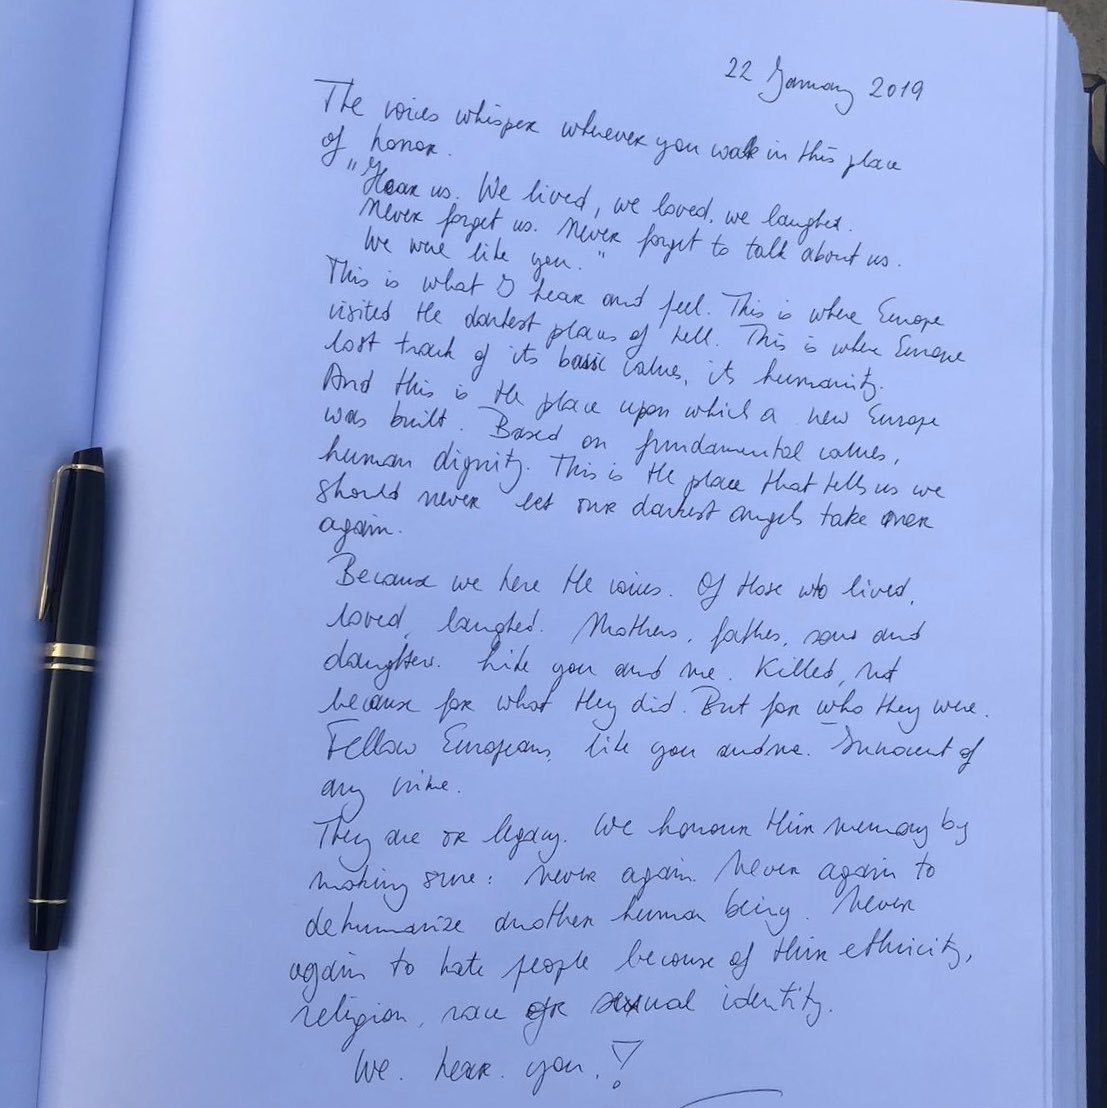 22 January 2019
The voices whisper wherever you walk in this place
of honor.
"Hear us. We lived, we loved, we laughed.
Never forget us. Never forget to talk about us.
We were like you."
This is what I hear and feel. This is where Europe
visited the darkest places of hell. This is where Europe
lost track of its basic values, its humanity.
And this is the place upon which a new Europe
was built. Based on fundamental values,
human dignity. This is the place that tells us we
should never let our darkest angels take over
again.
Because we here the voices. Of those who lived,
loved, laughed. Mothers, fathers, sons and
daughters. Like you and me. Killed, not
because for what they did. But for who they were.
Fellow Europeans, like you and me. Innocent of
any crime.
They are or legacy. We honour their memory by
making sure: never again. Never again to
dehumanize another human being. Never
again to hate people because of their ethnicity,
religion, race or sexual identity.
We. hear. you.!